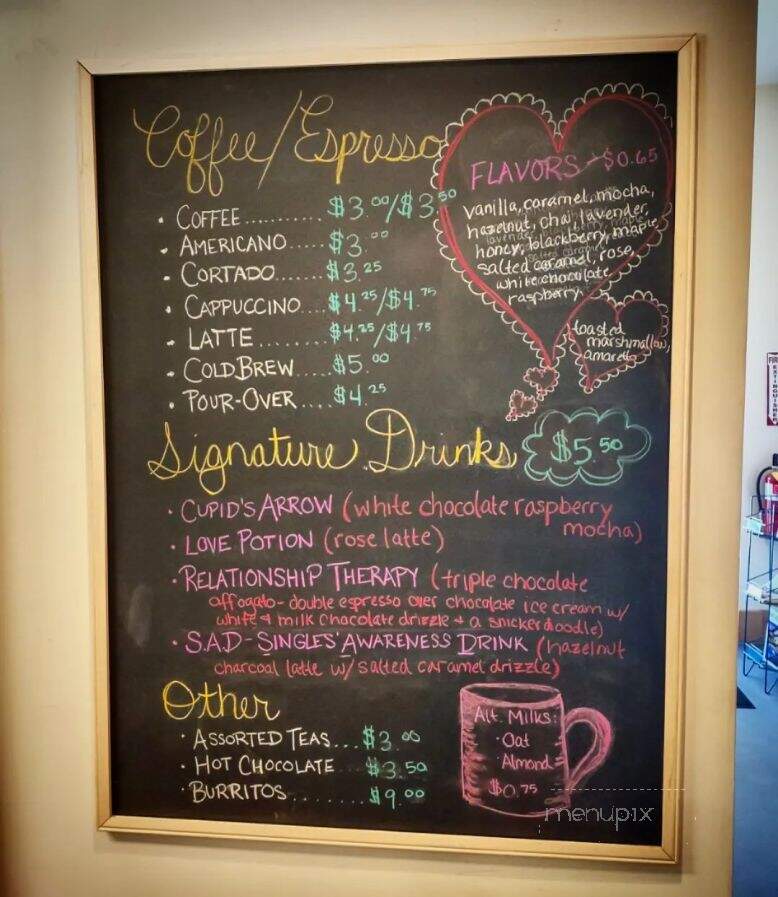 Coffee/Espresso
• COFFEE.......... $3.00/$3.50
• AMERICANO..... $3.00
• CORTADO....... $3.25
• CAPPUCCINO.... $4.25/$4.75
• LATTE.......... $4.25/$4.75
• COLD BREW.... $5.00
• POUR-OVER.... $4.25
FLAVORS - $0.65
vanilla, caramel, mocha,
hazelnut, chai, lavender,
honey, blackberry, maple
salted caramel, rose,
white chocolate
raspberry,
toasted
marshmallow,
amaretto
Signature Drinks
$5.50
• CUPID'S ARROW (white chocolate raspberry
mocha)
• LOVE POTION (rose latte)
• RELATIONSHIP THERAPY (triple chocolate
affogato - double espresso over chocolate ice cream w/
white & milk chocolate drizzle + a snickerdoodle)
• S.A.D - SINGLES' AWARENESS DRINK (hazelnut
charcoal latte w/ salted caramel drizzle)
Other
• ASSORTED TEAS... $3.00
• HOT CHOCOLATE $3.50
• BURRITOS........ $9.00
Alt. Milks:
• Oat
• Almond
$0.75
menupix